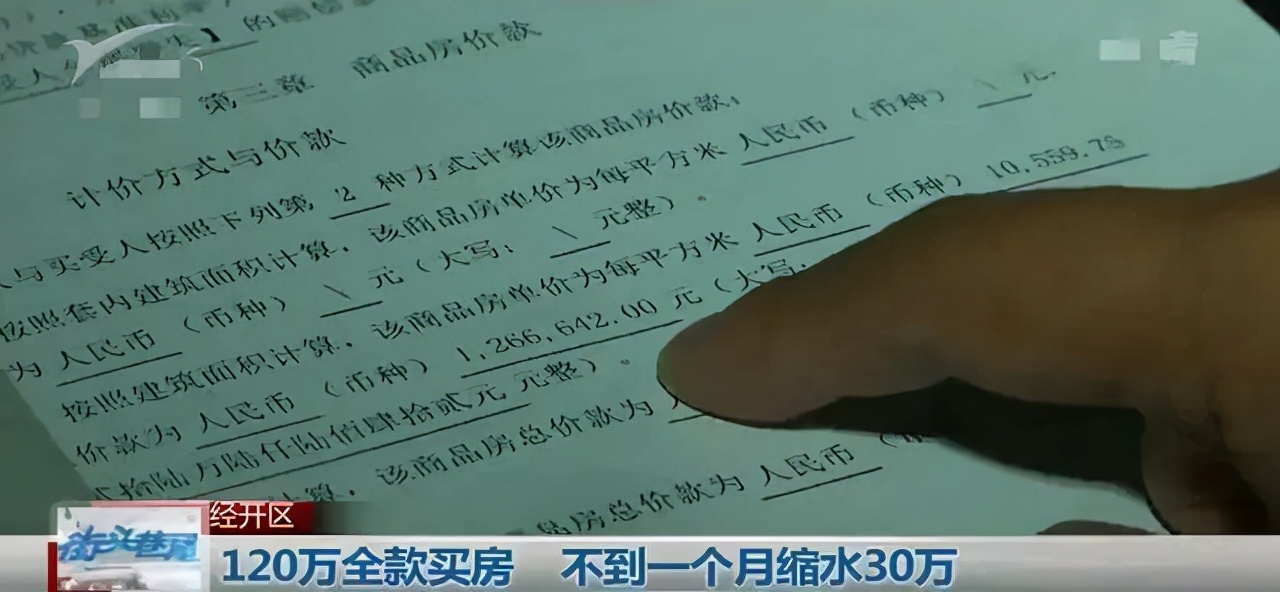 】的
第三章 商品房价款
计价方式与价款
与买受人按照下列第 2 种方式计算该商品房价款：
按照套内建筑面积计算，该商品房单价为每平方米 人民币 （币种） \ 元，
为 人民币 （币种） \ 元（大写： \ 元整）。
按照建筑面积计算，该商品房单价为每平方米 人民币 （币种） 10,559.78
价款为 人民币 （币种） 1,266,642.00 元（大写：
拾陆万陆仟陆佰肆拾贰元 元整）。
计算，该商品房总价款为
品房总价款为 人民币
经开区
街头巷尾
120万全款买房 不到一个月缩水30万